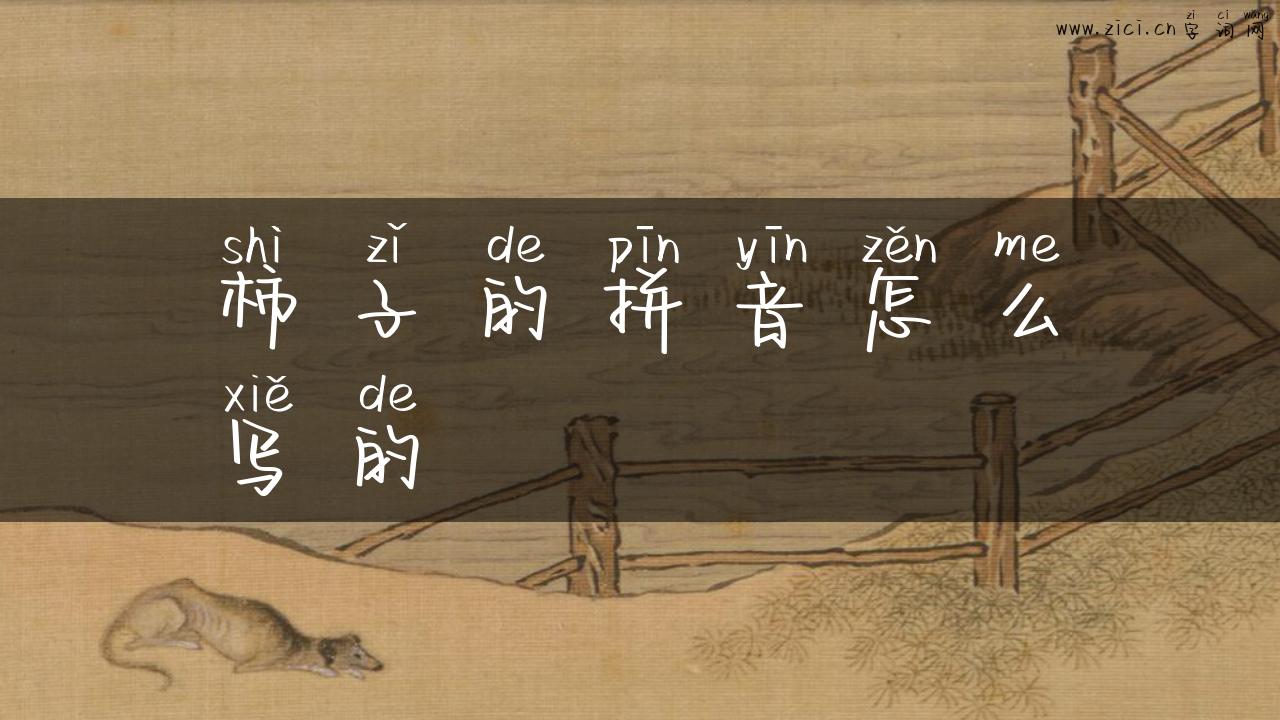 zi ci wang
www.zici.cn 字词网
shì zǐ de pīn yīn zěn me
柿子的拼音怎么
xiě de
写的